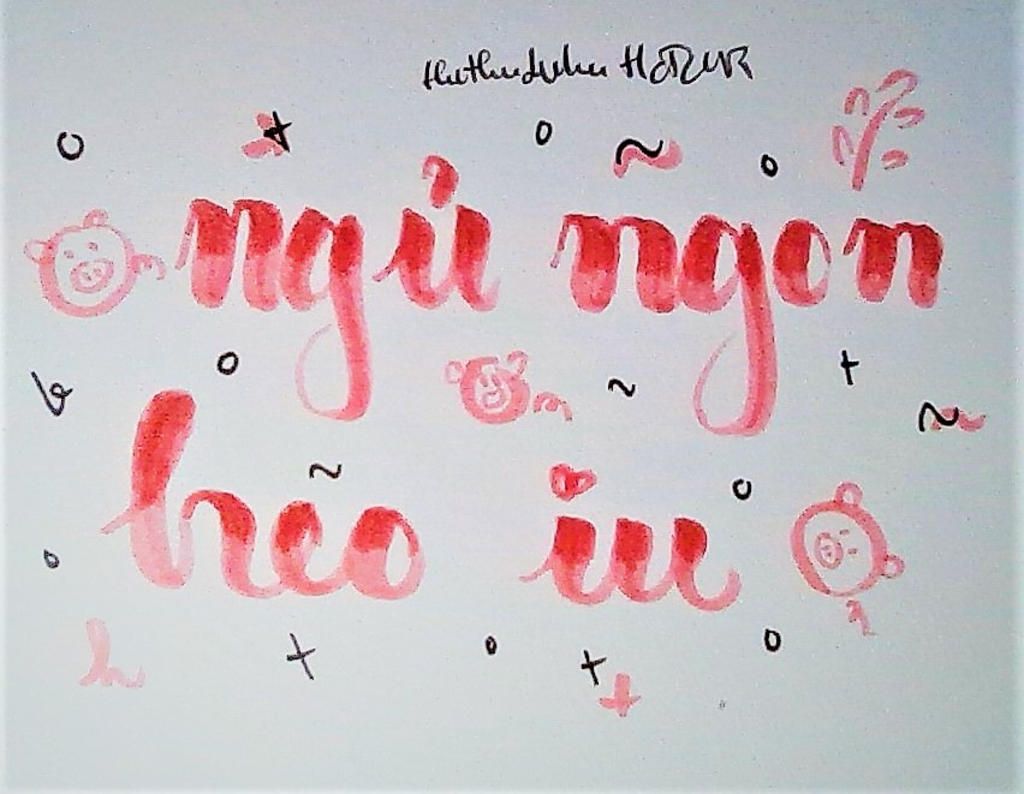 ngủ ngon
heo iu